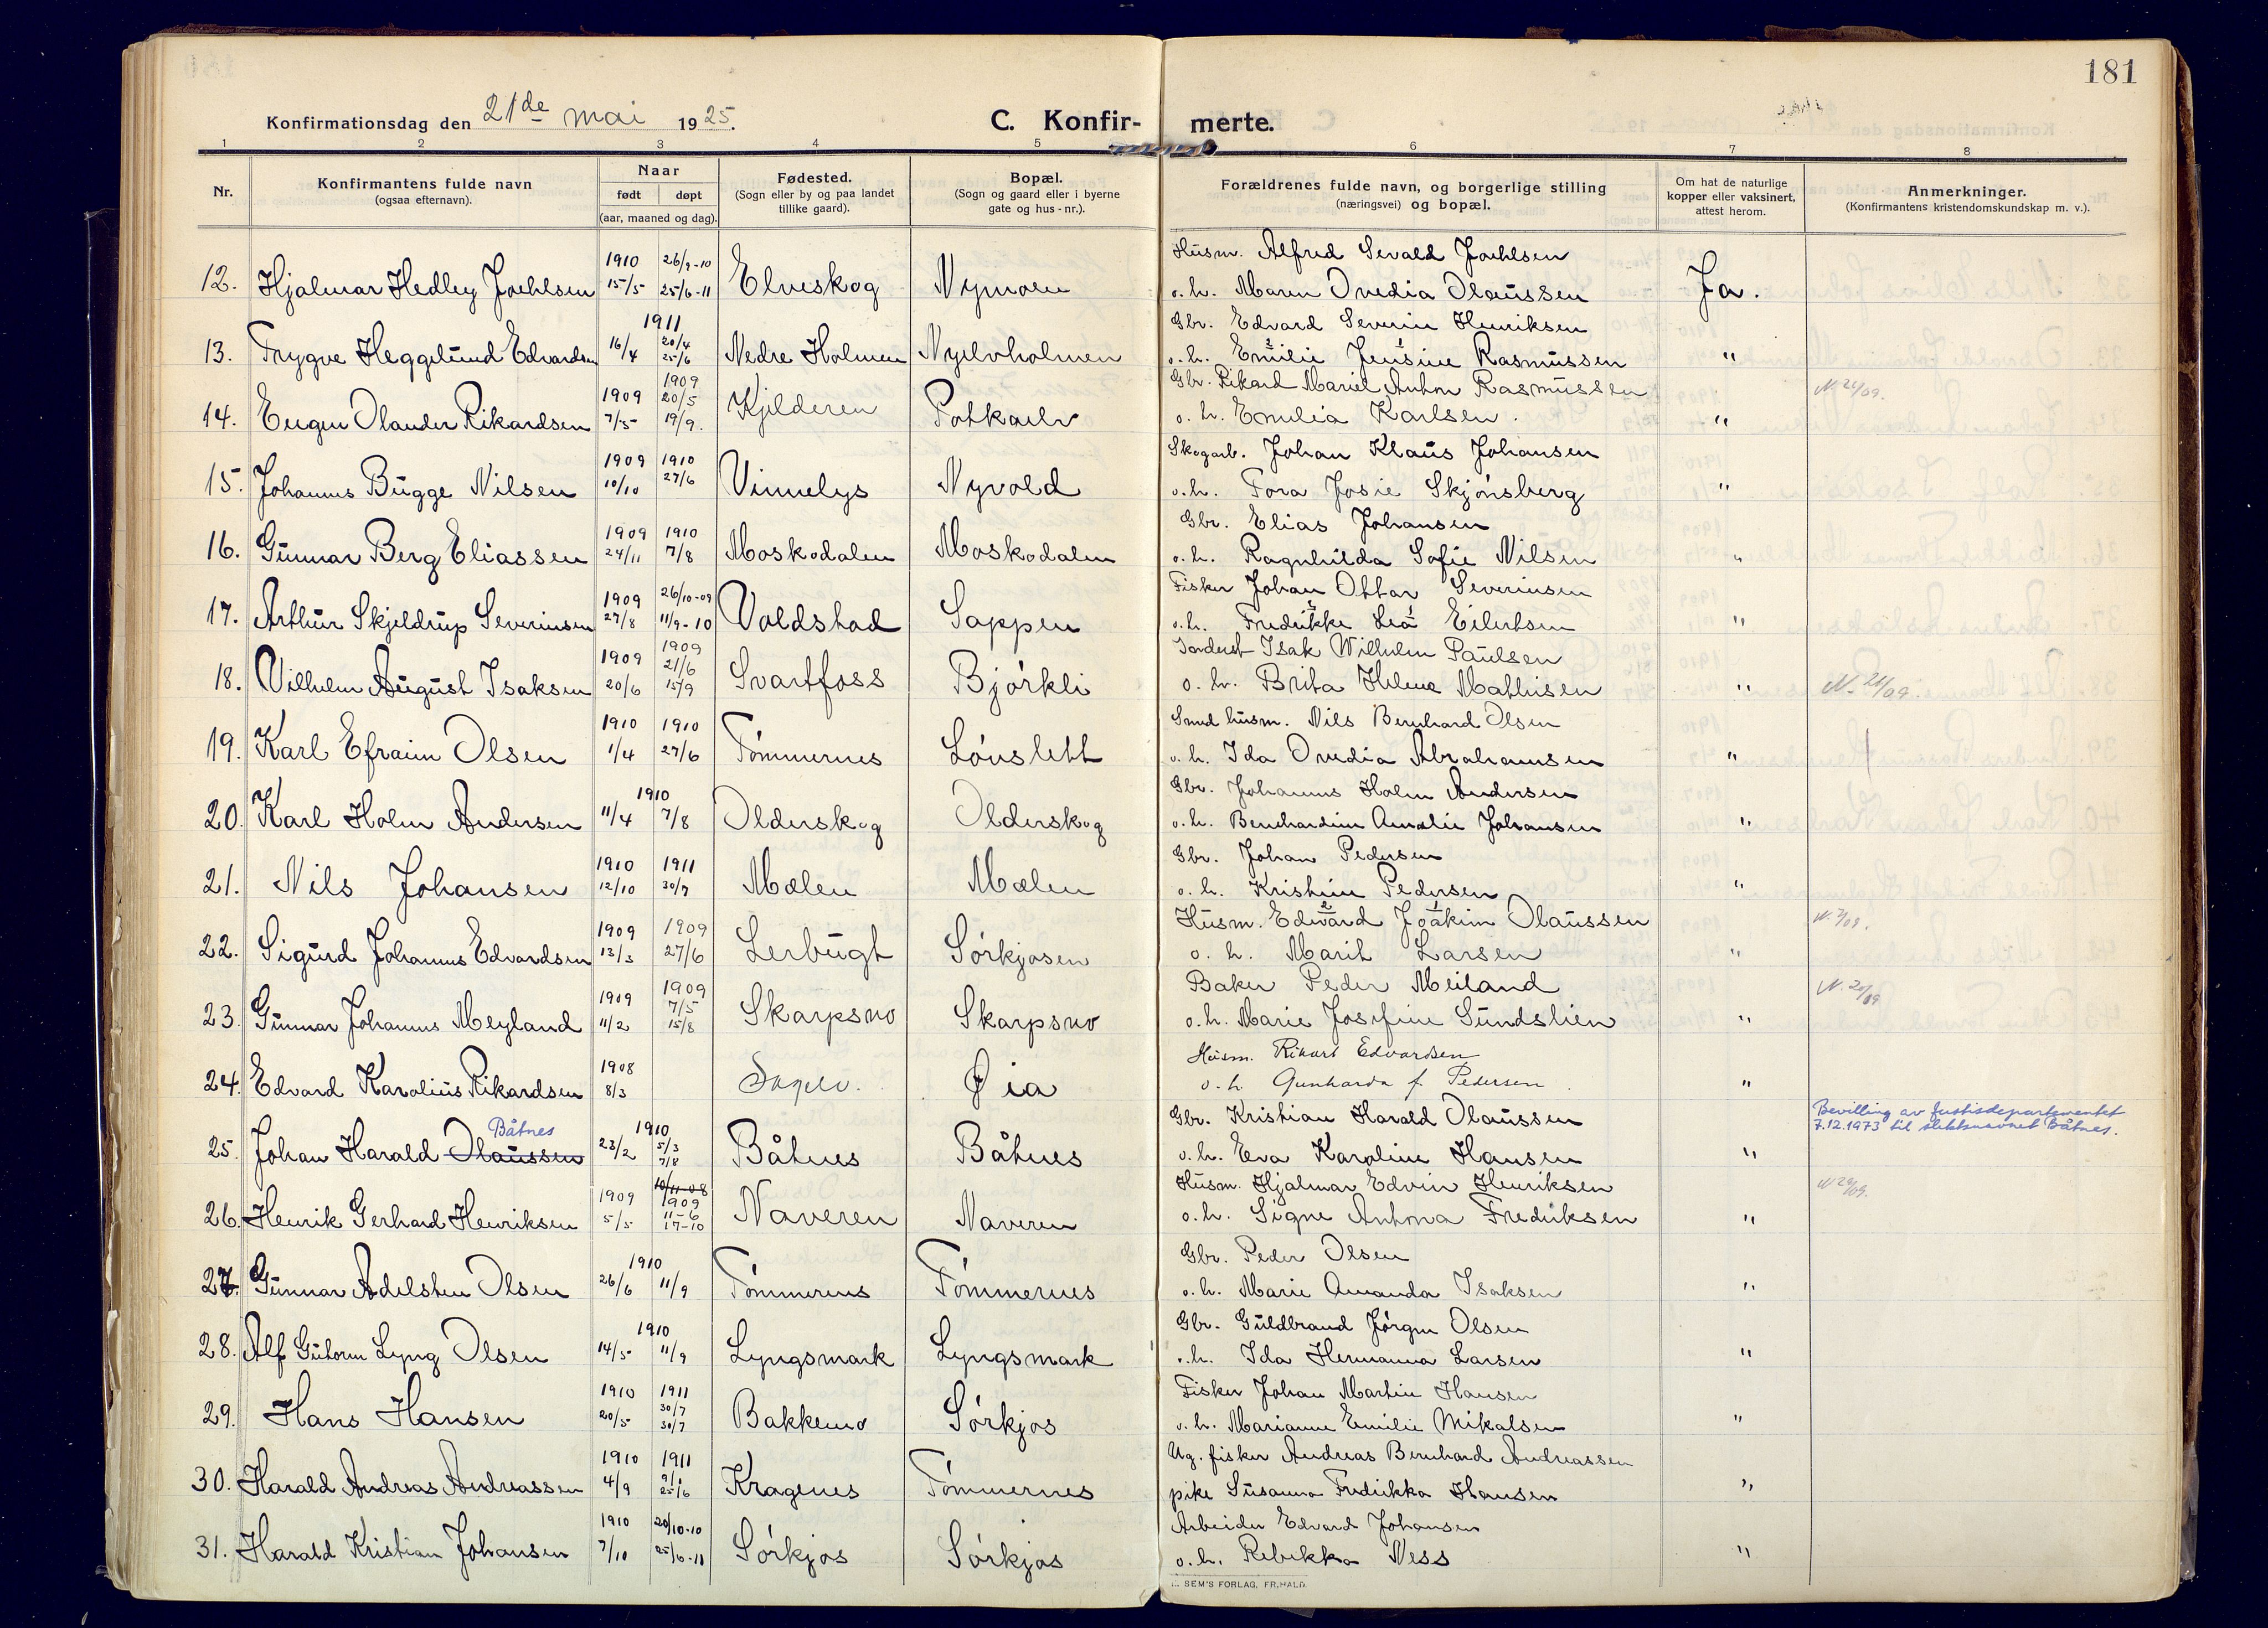 181
Konfirmationsdag den 21de mai 1925.
C. Konfirmerte.
1 2 3 4 5 6 7 8
Nr.
Konfirmantens fulde navn
(ogsaa efternavn).
Naar
født døpt
(aar, maaned og dag).
Fødested.
(Sogn eller by og paa landet
tillike gaard).
Bopæl.
(Sogn og gaard eller i byerne
gate og hus-nr.).
Forældrenes fulde navn, og borgerlige stilling
(næringsvei) og bopæl.
Om hat de naturlige
kopper eller vaksinert,
attest herom.
Anmerkninger.
(Konfirmantens kristendomskundskap m. v.).
1910 26/9-10 Husm. Alfred Sevald Joehlsen
12. Hjalmar Hedley Joehlsen 15/5 25/6-11 Elveskog Nymoen o.h. Maren Ovedia Olaussen Ja.
1911 Gbr. Edvard Severin Henriksen
13. Trygve Heggelund Edvardsen 16/4 20/4 25/6 Nedre Holmen Nyelvholmen o.h. Emilie Jensine Rasmussen "
1909 1909 20/5 Gbr. Rikard Mariel Anton Rasmussen N. 26/09.
14. Eugen Olander Rikardsen 7/5 19/9. Kjelderen Potkaelv o.h. Emilia Karlsen. "
1909 1910 Skogarb. Johan Klaus Johansen
15. Johannes Bugge Nilsen 10/10 27/6 Vinnelys Nyvold o.h. Tora Josie Skjónsberg "
1909 1910 Gbr. Elias Johansen
16. Gunnar Berg Eliassen 24/11 7/8 Moskodalen Moskodalen o.h. Ragnhilda Sofie Nilsen "
1909 26/10-09 Fisker Johan Ottar Severinsen
17. Arthur Skjeldrup Severinsen 27/8 11/9-10 Voldstad Sappen o.h. Fredrikke Lea Eilertsen "
1909 1909 21/6 Isak Wilhelm Paulsen
18. Vilhelm August Isaksen 20/6 15/9 Svartfoss Bjórkli o.h. Brita Helene Mathisen " N. 21/09.
1910 1910 Smed husm. Nils Bernhard Olsen
19. Karl Efraim Olsen 1/4 27/6 Tómmernes Lónslett o.h. Ida Ovedia Abrahamsen "
1910 Gbr. Johannes Holm Andersen
20. Karl Holm Andersen 11/4 7/8 Olderskog Olderskog o.h. Bernhardine Amalie Johansen "
1910 1911 Gbr. Johan Pedersen
21. Nils Johansen 12/10 30/7 Mælen Mælen o.h. Kristine Pedersen "
1909 1909 Husm. Edvard Joakim Olaussen
22. Sigurd Johannes Edvardsen 13/3 27/6 Lerbugt Sórkjosen o.h. Marit Larsen "
1909 1909 7/5 Baker Peder Meiland N. 20/09
23. Gunnar Johannes Meyland 11/2 15/8 Skarpsno Skarpsno o.h. Marie Josefine Sundslien "
1908 Husm. Rikart Edvardsen
24. Edvard Karolius Rikardsen 8/3 Sagelv. Øia o.h. Gunharda f. Pedersen "
Båtnes 1910 Gbr. Kristian Harald Olaussen Bevilling av Justisdepartementet
7.12.1973 til slektsnavnet Båtnes.
25. Johan Harald Olaussen 23/2 5/3 7/8 Båtnes Båtnes o.h. Eva Karoline Hansen "
1909 10/11-08 1909 Husm. Hjalmar Edvin Henriksen N 29/09.
26. Henrik Gerhard Henriksen 5/5 11-6 17-10 Naveren Naveren o.h. Signe Antona Fredriksen "
1910 Gbr. Peder Olsen
27. Gunnar Adelsten Olsen 26/6 11/9 Tómmernes Tómmernes o.h. Marie Amanda Isaksen "
1910 Gbr. Guldbrand Jórgen Olsen
28. Alf Gutorm Lyng Olsen 14/5 11/9 Lyngsmark Lyngsmark o.h. Ida Hermanna Larsen "
1910 1911 Fisker Johan Martin Hansen
29. Hans Hansen 20/5 30/7 30/7 Bakkemo Sórkjos o.h. Marianne Emilie Mikalsen "
1910 1911 Ug. fisker Andreas Bernhard Andreassen
30. Harald Andreas Andreassen 4/9 25/6 Kragenes Tómmernes pike Susanna Fredrikka Hansen "
1910 20/10-10 Arbeider Edvard Johansen
31. Harald Kristian Johansen 7/10 25/6-11 Sórkjos Sórkjos o.h. Rebekka Ness "
SEM'S FORLAG, FR.HALD.